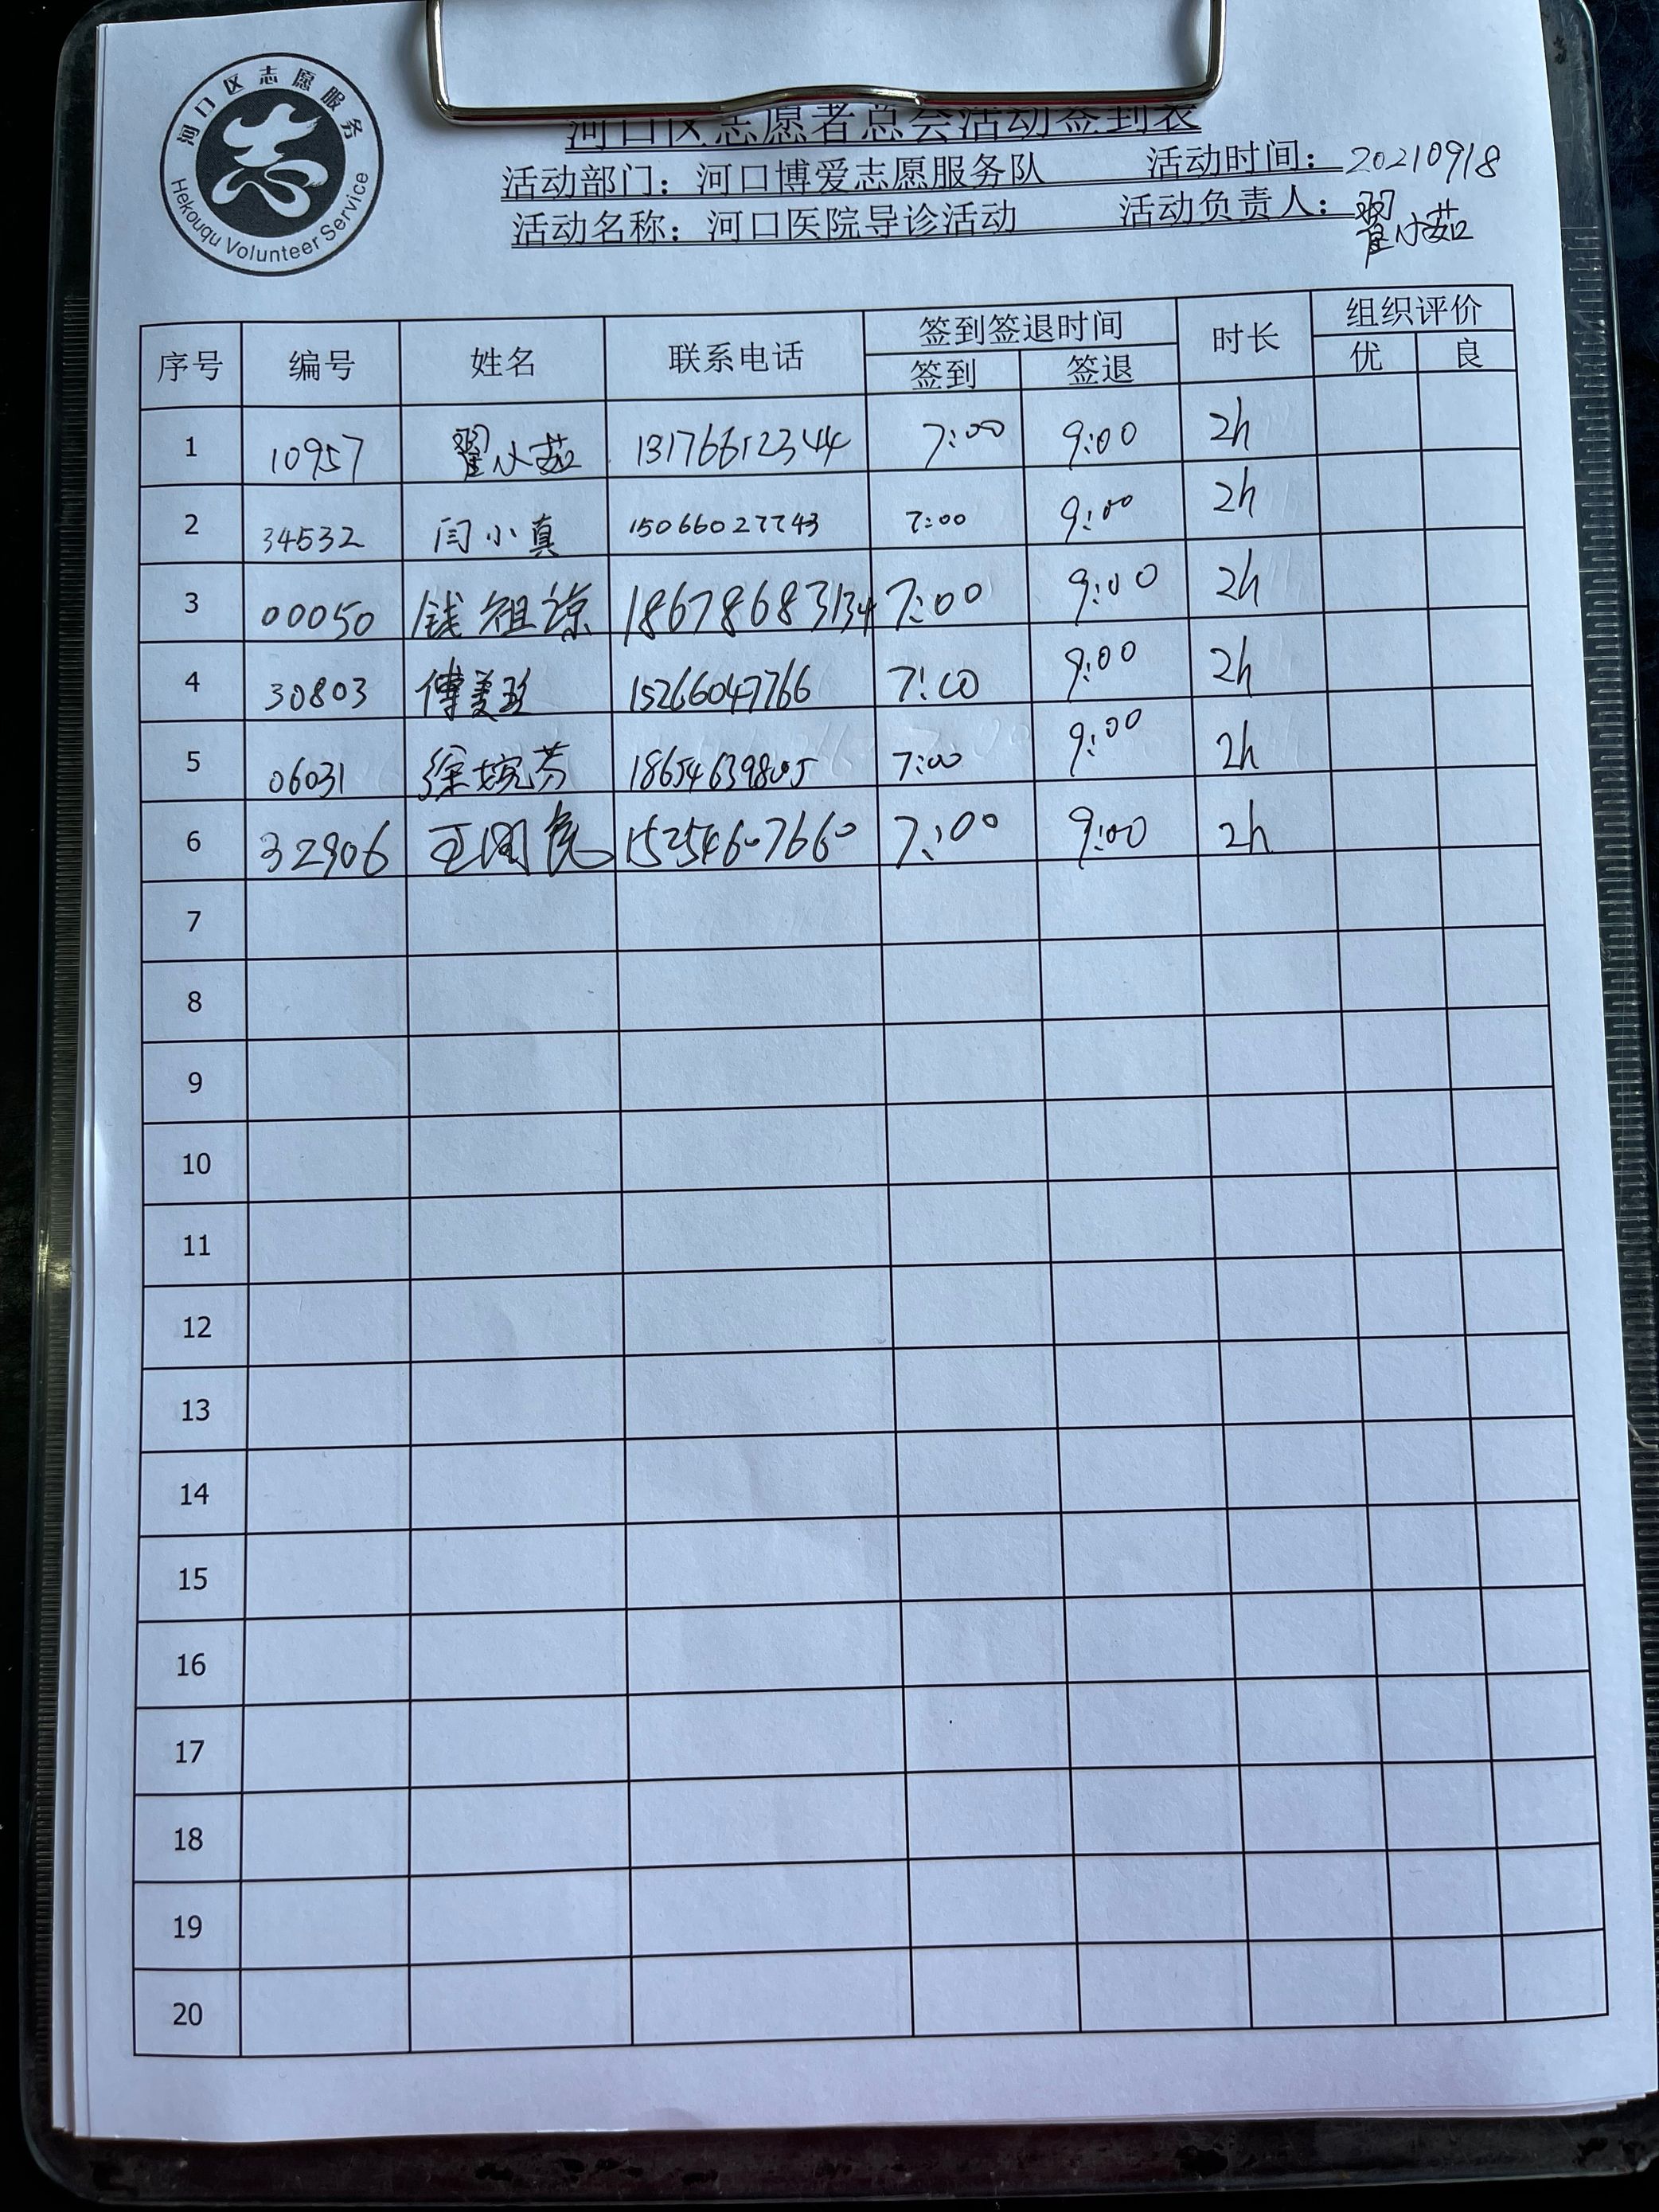 河口区志愿服务
Hekouqu Volunteer Service
河口区志愿者总会活动签到表
活动部门：河口博爱志愿服务队 活动时间：20210918
活动名称：河口医院导诊活动 活动负责人：翟小茹
序号 编号 姓名 联系电话 签到签退时间 时长 组织评价
签到 签退 优 良
1 10957 翟小茹 13176612344 7:00 9:00 2h
2 34532 闫小真 15066027743 7:00 9:00 2h
3 00050 钱祖谅 18678683134 7:00 9:00 2h
4 30803 傅美玲 15266047766 7:00 9:00 2h
5 06031 徐婉芳 18654639805 7:00 9:00 2h
6 32906 王国 15254607660 7:00 9:00 2h
7
8
9
10
11
12
13
14
15
16
17
18
19
20